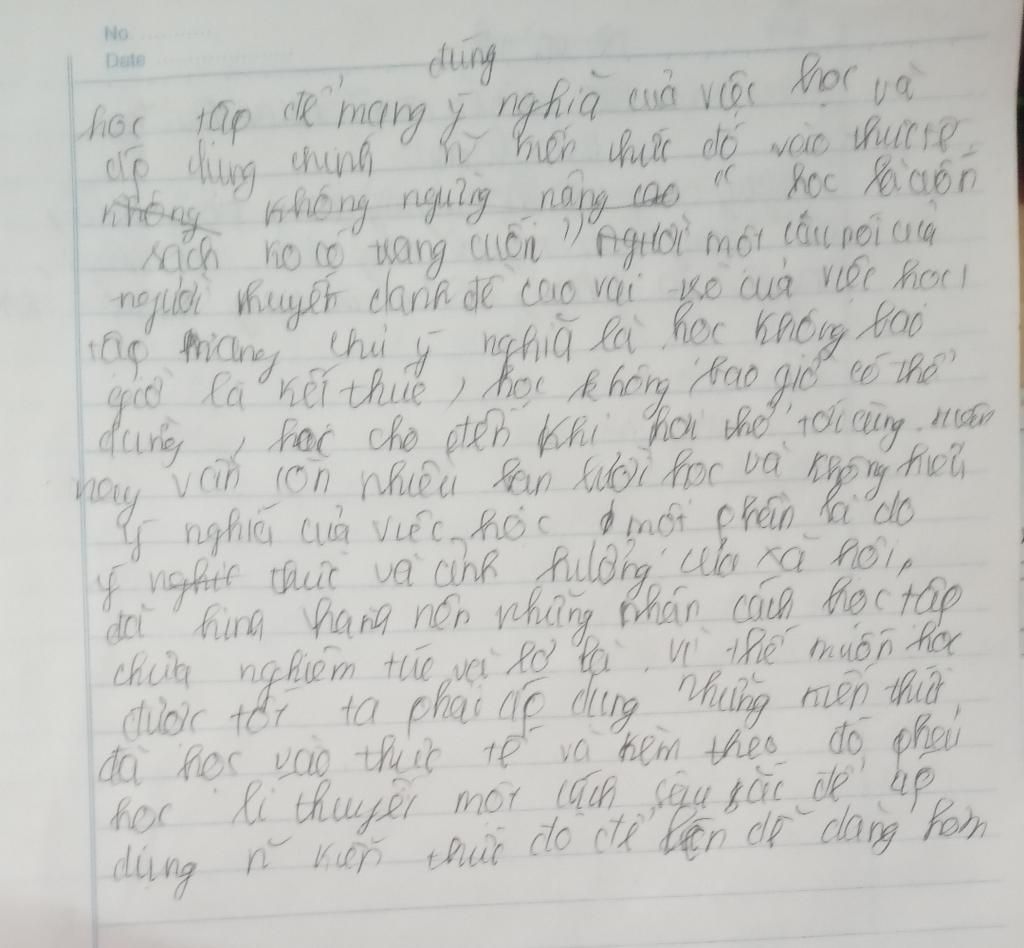 No
Date
dúng
học tập để mang ý nghĩa của việc học và
áp dụng chính n~ kiến thức đó vào thực tế.
không ngừng nâng cao " học là cuốn
sách ko có trang cuối" Người một câu nói của
người thuyết danh đề cao vai trò của việc học
tập mang chủ ý nghĩa là học không bao
giờ là kết thúc, học không bao giờ có thể
dừng, học cho đến khi hơi thở tối cùng.
nay vẫn còn nhiều bạn lười học và không hiểu
ý nghĩa của việc học một phần là do
ý thức và ảnh hưởng của xã hội,
đã hình thành nên những nhân cách học tập
chưa nghiêm túc và lơ là. vì thế muốn học
được tốt ta phải áp dụng những kiến thức
đã học vào thực tế và kèm theo đó phải
học lí thuyết một cách sâu sắc để áp
dụng n~ kiến thức đó để dễ dàng hơn